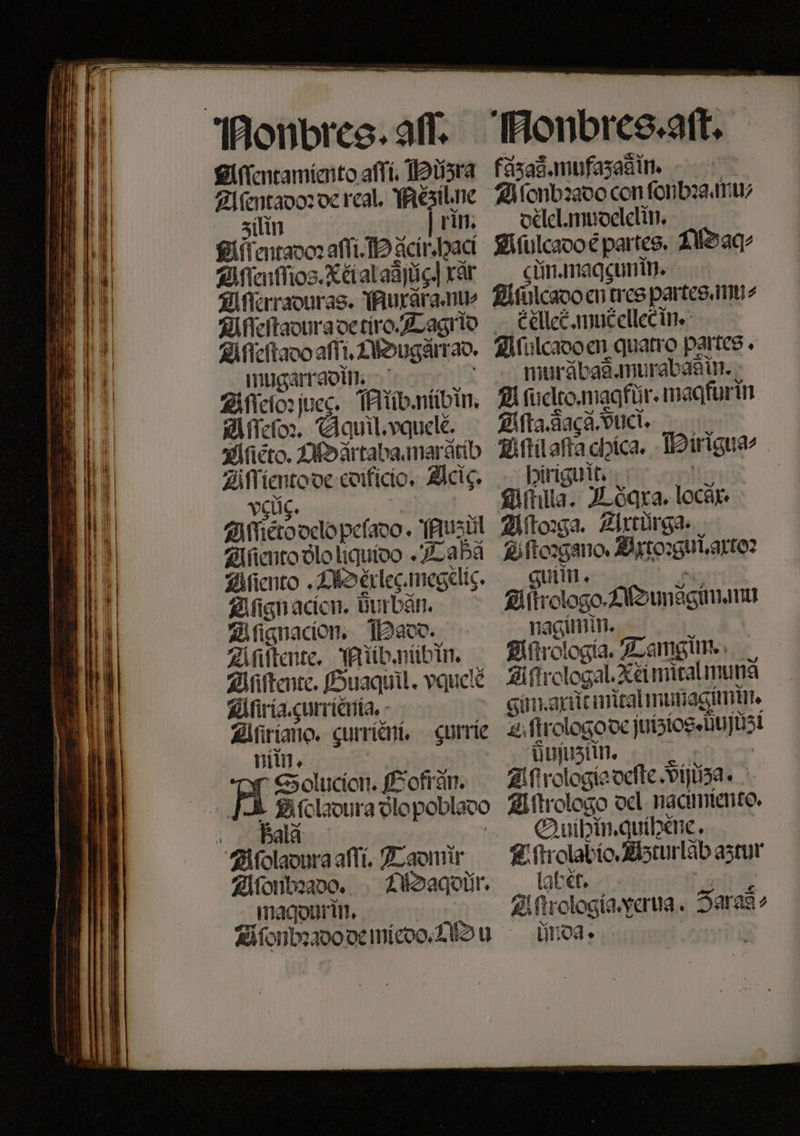 Nonbres. aſſ.
Aſſentamiento aſſi. Düzra
Aſentador de real. Nézil.ne
zilin [rin,
Aſſentador aſſi. Dácir.haci
Aſſenſſios.
Aſſerraduras. Nuxára.nu-
Aſſeſtadura de tiro. Tagrid
Aſſeſtado aſſi. Mugárrad.
mugarradin.
Aſſeſor juec. Náib.nüibin,
Aſſeſor. Uáquil.vquelé.
Aſiéto. Mártaba.marátib
Aſſiento de edificio. Alciç.
vçüç.
Aſſiéto delo peſado. Nuzúl
Aſiento dlo liquido.
Aſiento. Mérlec.megeliç.
Aſignacion. ürbán.
Aſignacion. Dado.
Aſiſtente. Náib.nüibin.
Aſiſtente. Huaquil. vquelé
Aſiria.çurriénia.
Aſiriano. çurriéni. çurrie
niin.
Aſolucion. Gofrán.
Aſoladura dlo poblado
Balá
Aſoladura aſſi. Tadmir
Aſonbrado. Maqdúr.
maqdurin.
Aſonbrado de miedo. Mu
Nonbres.aſt.
fázaâ.mufazaâin.
Aſonbrado con ſonbra.mu-
délel.mudelelin.
Aſulcado é partes. Mdaq-
çún.maqçumin.
Aſulcado en tres partes.mu-
céllec.mucellecin.
Aſulcado en quatro partes.
murábaâ.murabaâin.
Aſuelto.maqfür. maqfurin
Aſta.âaçá.vuci.
Aſtil aſta chica. Dirigua-
hiriguit.
Aſtilla. Lóqra. locár.
Aſtorga. Axtürga.
Aſtorgano. Axtorgui.axtor
guiin.
Aſtrologo. Munágim.mu
nagimin.
Aſtrologia. Tamgim.
Aſtrologal. Xéi mital muná
gim.axit mital munagimin.
Aſtrologo de juizios.üujúzi
üujuziin.
Aſtrologia deſte. Vijüza.
Aſtrologo del nacimiento.
Quihin.quihéne.
Aſtrolabio. Azturláb aztur
labét.
Aſtrologia.verua. Daraâ-
únda.